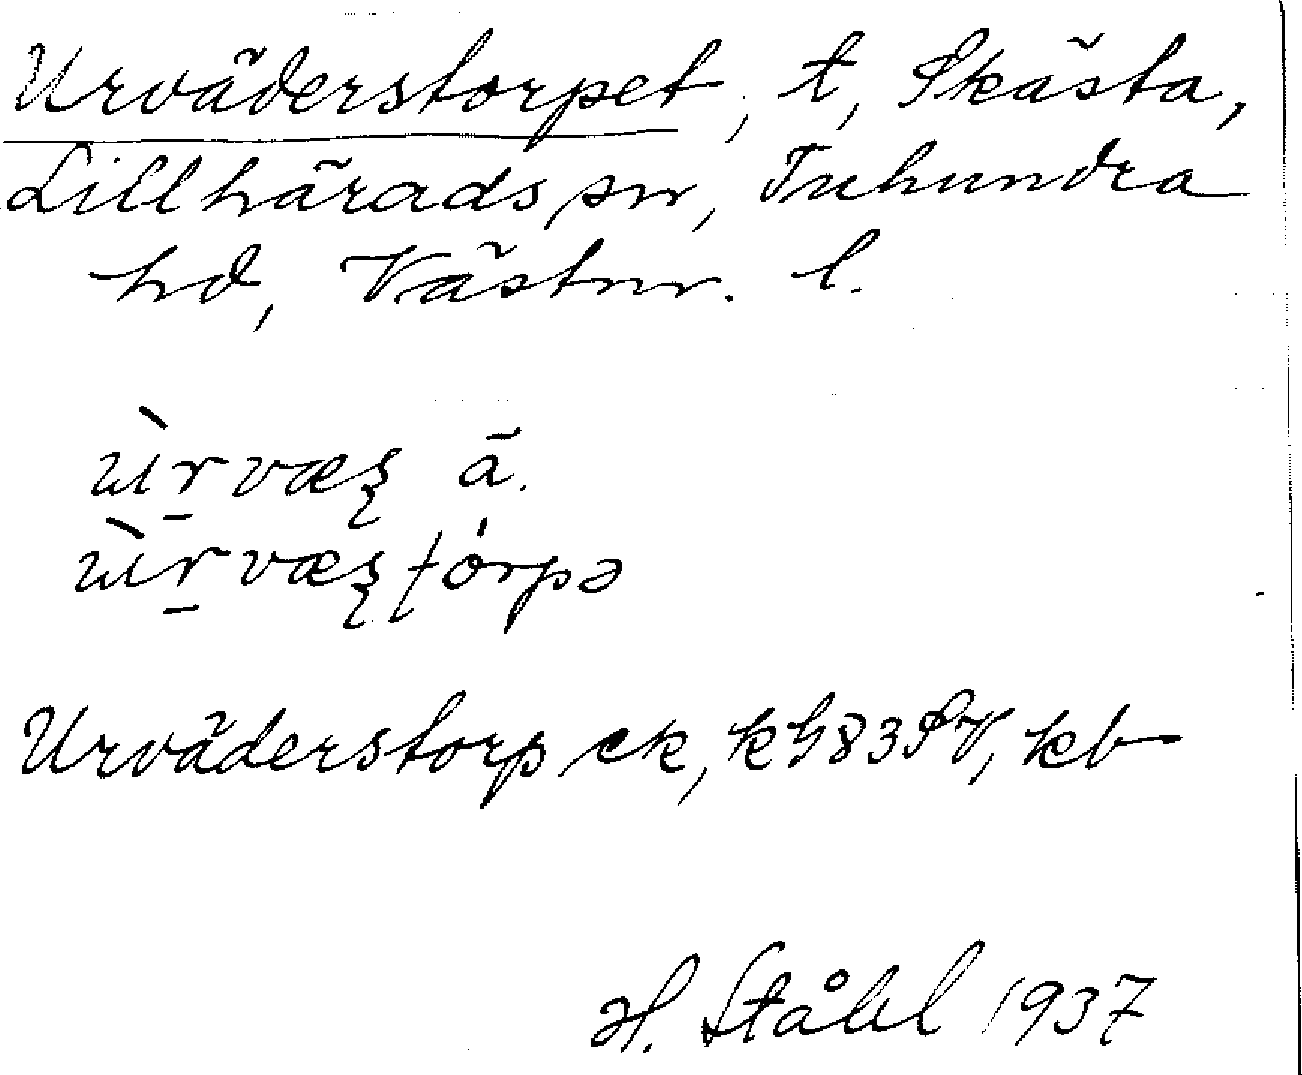 Urväderstorpet, t, Skästa,
Lillhärads sn, Tuhundra
hd, Västm. l.
ùr̠væʂ ā.
ùr̠væʂʈórpə
Urväderstorp ek, k G83SV, kb
H. Ståhl 1937